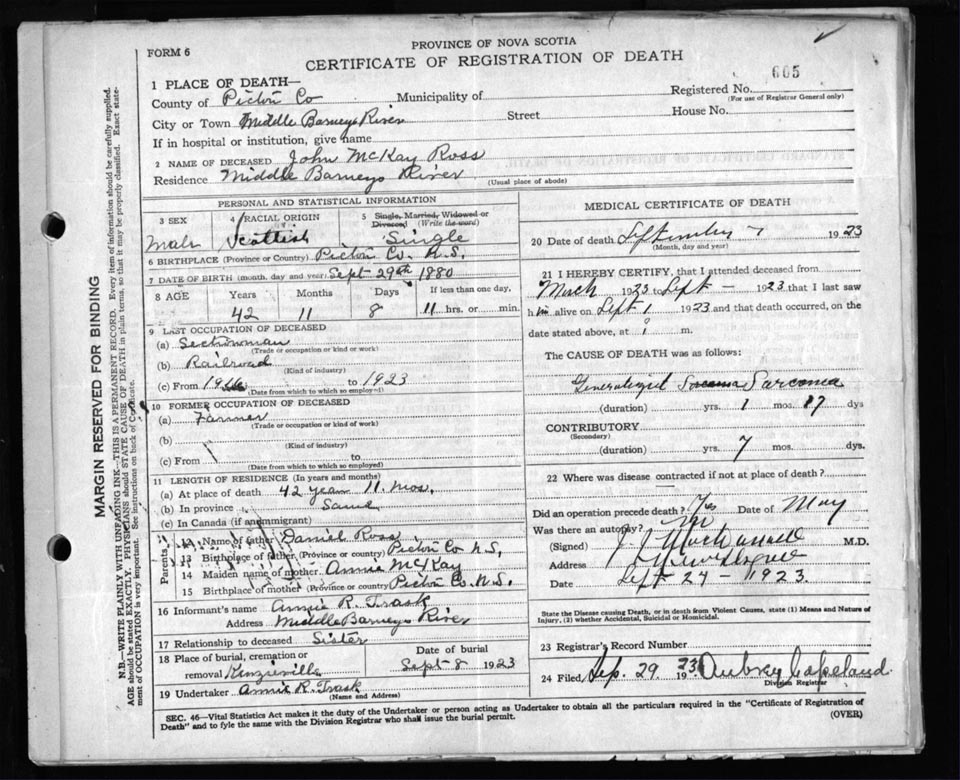 PROVINCE OF NOVA SCOTIA
FORM 6
CERTIFICATE OF REGISTRATION OF DEATH
605
1 PLACE OF DEATH—
Registered No.
(For use of Registrar General only)
County of Pictou Co Municipality of
City or Town Middle Barneys River Street House No.
If in hospital or institution, give name
2 NAME OF DECEASED John McKay Ross
Residence Middle Barneys River
(Usual place of abode)
PERSONAL AND STATISTICAL INFORMATION
3 SEX 4 RACIAL ORIGIN 5 Single, Married, Widowed or Divorced (Write the word)
Male Scottish Single
6 BIRTHPLACE (Province or Country) Pictou Co. N.S.
7 DATE OF BIRTH (month, day and year) Sept 29th 1880
8 AGE Years Months Days If less than one day,
42 11 8 11 hrs. or min.
9 LAST OCCUPATION OF DECEASED
(a) Sectionman
(Trade or occupation or kind of work)
(b) Railroad
(Kind of industry)
(c) From to 1923
(Date from which to which so employed)
10 FORMER OCCUPATION OF DECEASED
(a) Farmer
(Trade or occupation or kind of work)
(b)
(Kind of industry)
(c) From to
(Date from which to which so employed)
11 LENGTH OF RESIDENCE (In years and months)
(a) At place of death 42 years 11. mos.
(b) In province Same
(c) In Canada (if an immigrant)
Parents
12 Name of father Daniel Ross
13 Birthplace of father (Province or country) Pictou Co N.S.
14 Maiden name of mother Annie McKay
15 Birthplace of mother (Province or country) Pictou Co. N.S.
16 Informant's name Annie R. Trask
Address Middle Barneys River
17 Relationship to deceased Sister
18 Place of burial, cremation or removal Kenzieville
Date of burial
Sept 8 1923
19 Undertaker Annie R. Trask
(Name and Address)
MEDICAL CERTIFICATE OF DEATH
20 Date of death September 7 1923
(Month, day and year)
21 I HEREBY CERTIFY, that I attended deceased from
March 1923 to Sept — 1923 that I last saw
him alive on Sept 1 1923 and that death occurred, on the
date stated above, at m.
The CAUSE OF DEATH was as follows:
Generalized Sarcoma
(duration) yrs. 1 mos. 17 dys
CONTRIBUTORY
(Secondary)
(duration) yrs. 7 mos. dys.
22 Where was disease contracted if not at place of death?
Did an operation precede death? Yes Date of May
Was there an autopsy? no
(Signed) M.D.
Address
Date Sept 24 - 1923
State the Disease causing Death, or in death from Violent Causes, state (1) Means and Nature of
Injury, (2) whether Accidental, Suicidal or Homicidal.
23 Registrar's Record Number
24 Filed Sep. 29 1923 Aubrey Copeland
Division Registrar
SEC. 46—Vital Statistics Act makes it the duty of the Undertaker or person acting as Undertaker to obtain all the particulars required in the "Certificate of Registration of
Death" and to fyle the same with the Division Registrar who shall issue the burial permit.
(OVER)
MARGIN RESERVED FOR BINDING
N.B.—WRITE PLAINLY WITH UNFADING INK—THIS IS A PERMANENT RECORD. Every item of information should be carefully supplied.
AGE should be stated EXACTLY. PHYSICIANS should STATE CAUSE OF DEATH in plain terms, so that it may be properly classified. Exact statement of OCCUPATION is very important. See instructions on back of Certificate.